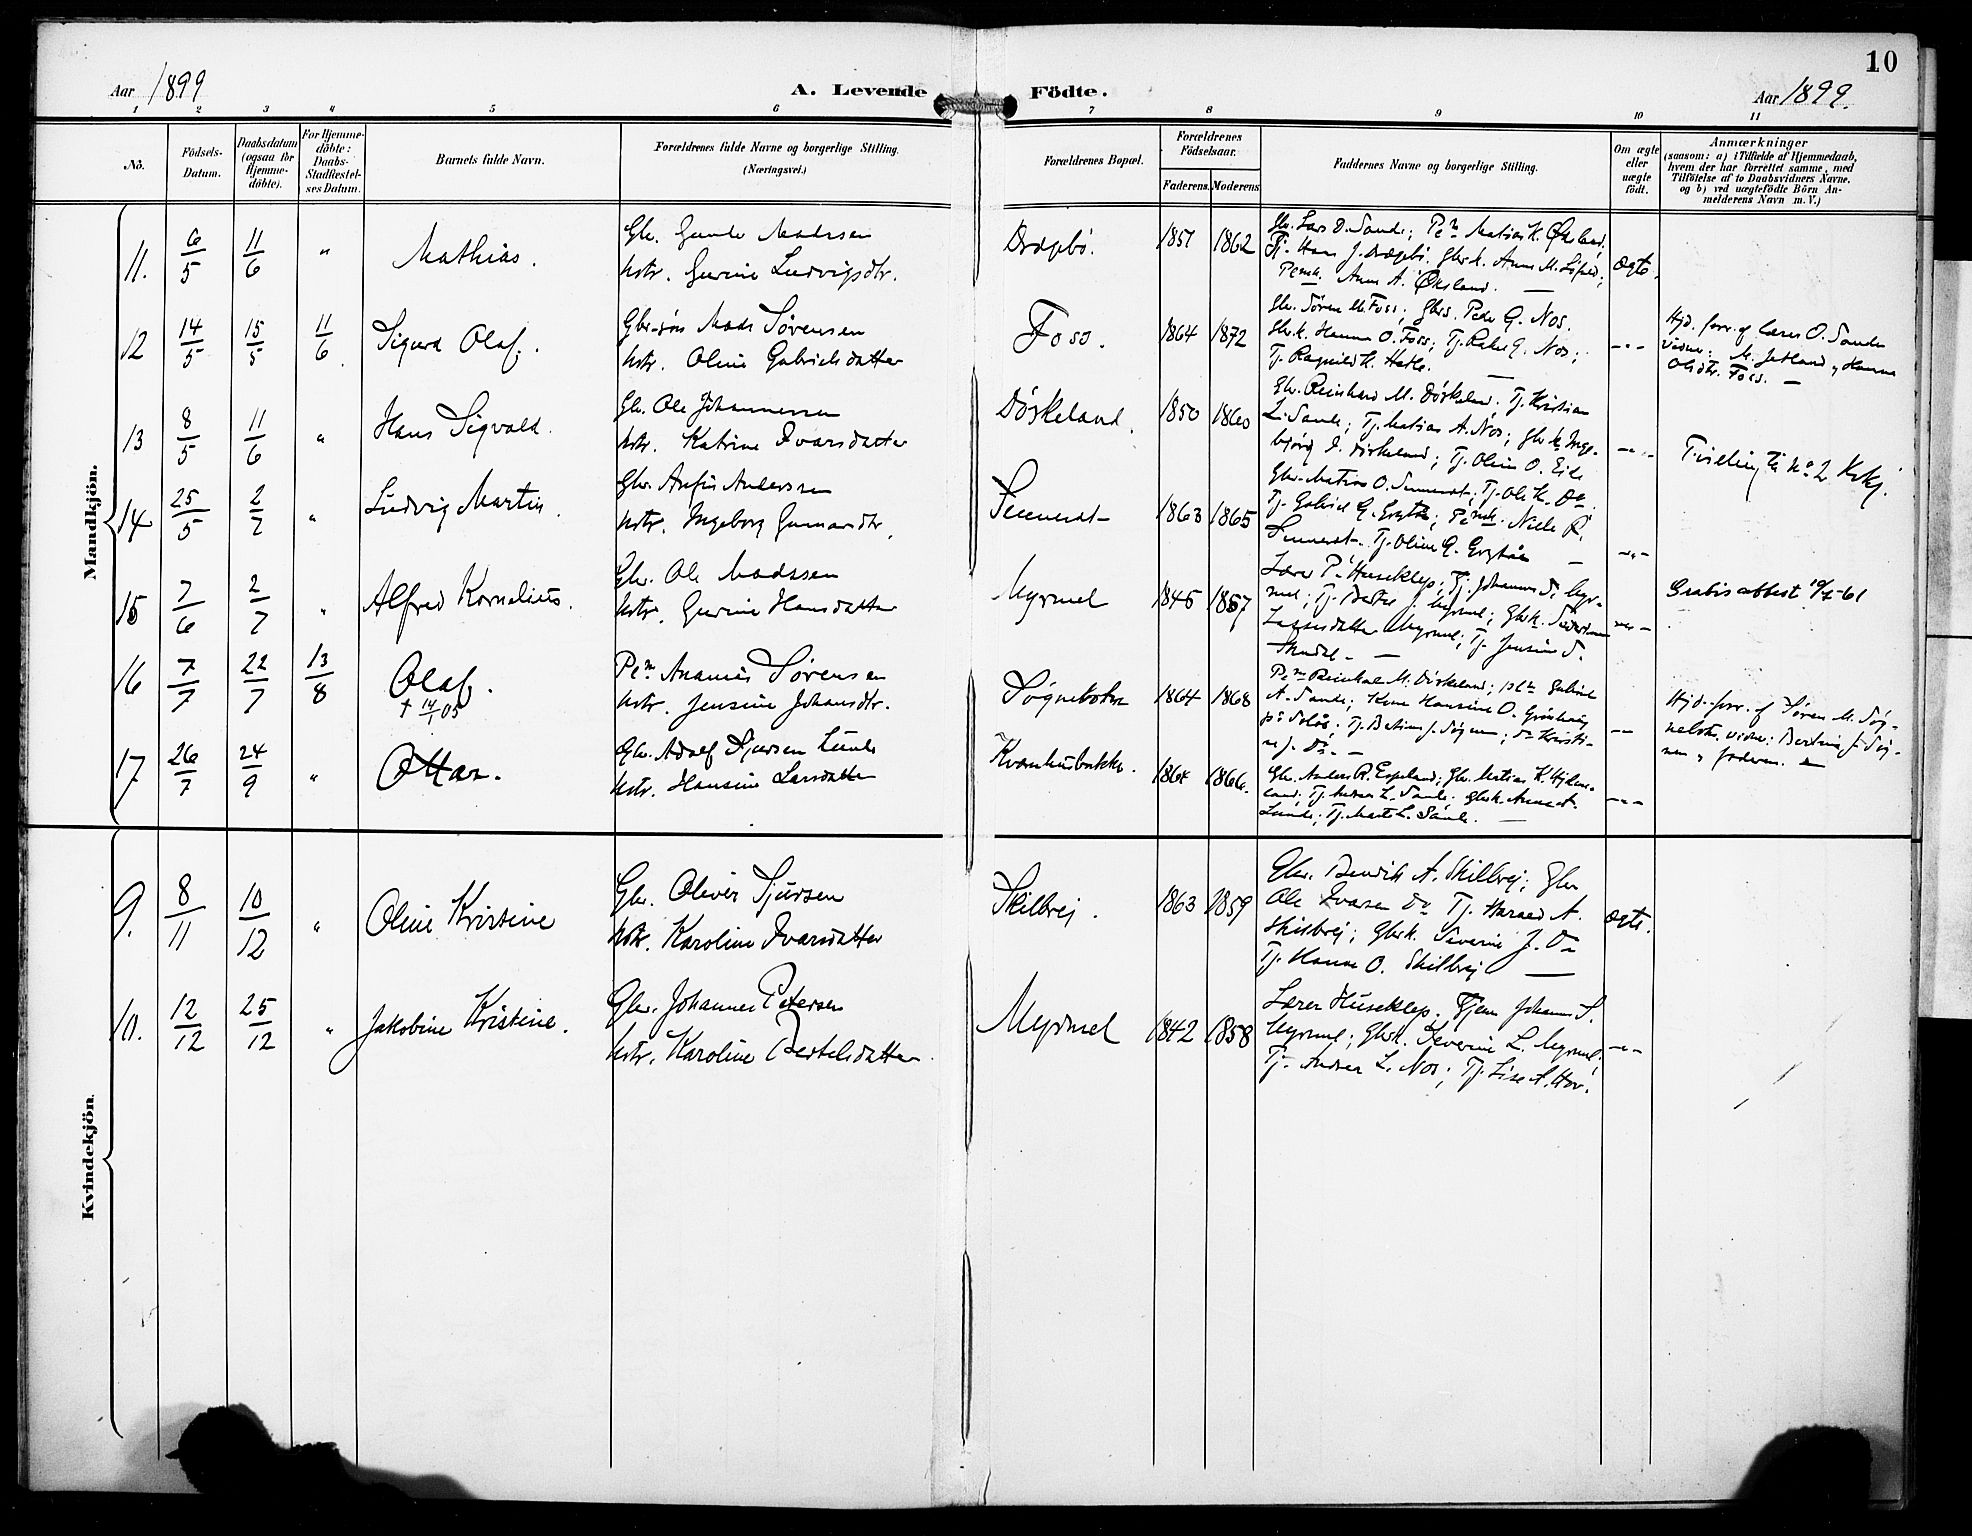 10
Aar 1899
A. Levende Födte.
Aar 1899.
1 2 3 4 5 6 7 8 9 10 11
No.
Födsels-Datum.
Daabsdatum (ogsaa for Hjemme-döbte).
For Hjemme-döbte: Daabs-Stadfæstel-ses Datum.
Barnets fulde Navn.
Forældrenes fulde Navne og borgerlige Stilling.
(Næringsvei.)
Forældrenes Bopæl.
Forældrenes Födselsaar.
Faderens. Moderens
Faddernes Navne og borgerlige Stilling.
Om ægte eller uægte födt.
Anmærkninger
(saasom: a) i Tilfælde af Hjemmedaab,
hvem der har forrettet samme, med
Tilföielse af to Daabsvidners Navne.
og b) ved uægtefödte Börn An-
melderens Navn m. V.)
Mandkjön.
11. 6/5 11/6 " Mathias.
Gbr. Madssen
hstr. Gurine Ludvigsdtr.
Drægebø. 1857 1862
Gbr. Lars O. Sande; Pem Matias K. Øksland;
Tj. Hans J. Drægebø. Gbrk. Anna M.
Pemk. Anna A. Øksland.
ægte.
12 14/5 15/5 11/6 Sigurd Olaf.
Gbrsøn Mads Sørensen
hstr. Oline Gabrielsdatter
Foss. 1864 1872
Gbr. Søren M. Foss; Gbrs. Peder G. Nos.
Gbrk. Hanna O. Foss; Tj. G. Nos;
Tj. Ragnild K. Hatle.
-"-
Hjd. forr. af lærer O. Sande
vidner: M. Jetland og Hanna
Olsdtr. Foss. —
13 8/5 11/6 " Hans Sigvald.
Gbr. Ole Johannessen
hstr. Katrine Ivarsdatter
Dørkeland. 1850 1860
Gbr. Reinhard M. Dørkeland. Tj. Kristian
L. Sande; Tj. Matias A. Nos; Gbrk. Inge-
bjørg I. Dirkeland; Tj. Oline O. Eide
-"-
Tvilling til No 2 Kvkj.
14 25/5 2/7 " Ludvig Martin.
Gbr. Anfin Anderssen
hstr. Ingeborg
1863 1865
Gbr. Matias O.; Tj. Ole K. Do.
Tj. Gabriel G.; Pemk. R.
Tj. Oline G.
-"-
15 7/6 2/7 " Alfred Kornelius.
Gbr. Ole Madssen
hstr. Gurine Hansdatter
Myrmel 1845 1857
Lærer P. Huseklep; Tj. Johannes S. Myr-
mel; Tj. Bertel J. Myrmel; Gbrk.
Myrmel; Tj. Jensine S.
-"-
16 7/7 22/7 13/8 Olaf.
† 14/1 05
Pem Ananias Sørensen
hstr. Jensine Johansdtr.
Søgnebotn 1864 1868
Pem Reinhal M. Dirkeland; Gabriel
A. Sande; Kone Hansine O. Grønhaug
Tj. Bertine J. Søgnen; Do Kristi-
ne J. Do. —
-"-
Hjd. forr. af Søren M. Søg-
nebotn. vidner: Bertine J. Søg-
nen og faderen. —
17 26/7 24/9 " Ottar.
Gbr. Adolf Sjursen Lunde
hstr. Hansine Larsdatter
1864 1866.
Gbr. Anders R. Espeland; Gbr. Matias K.
Tj. L. Sande; Gbrk. Anna A.
Lunde; Tj. Marte L. Sande. —
-"-
Kvindekjön.
9. 8/11 10/12 " Oline Kristine
Gbr. Oliver Sjursen
hstr. Karoline Ivarsdatter
Skilbrej. 1863 1859
Gbr. Bendik A. Skilbrej; Gbr
Ole Ivarsen Do Tj. Harald A.
Skilbrej; Gbrk. Severine J. Do
Tj. Hanna O. Skilbrej —
ægte.
10. 12/12 25/12 " Jakobine Kristine.
Gbr. Johannes Petersen
hstr. Karoline Bertelsdatter.
Myrmel 1842 1858
Lærer Huseklep. Tjener Johannes S.
Myrmel; Gbrk. Severine L. Myrmel;
Tj. Andrea L. Nos; Tj. Lise A. Hov.
-"-